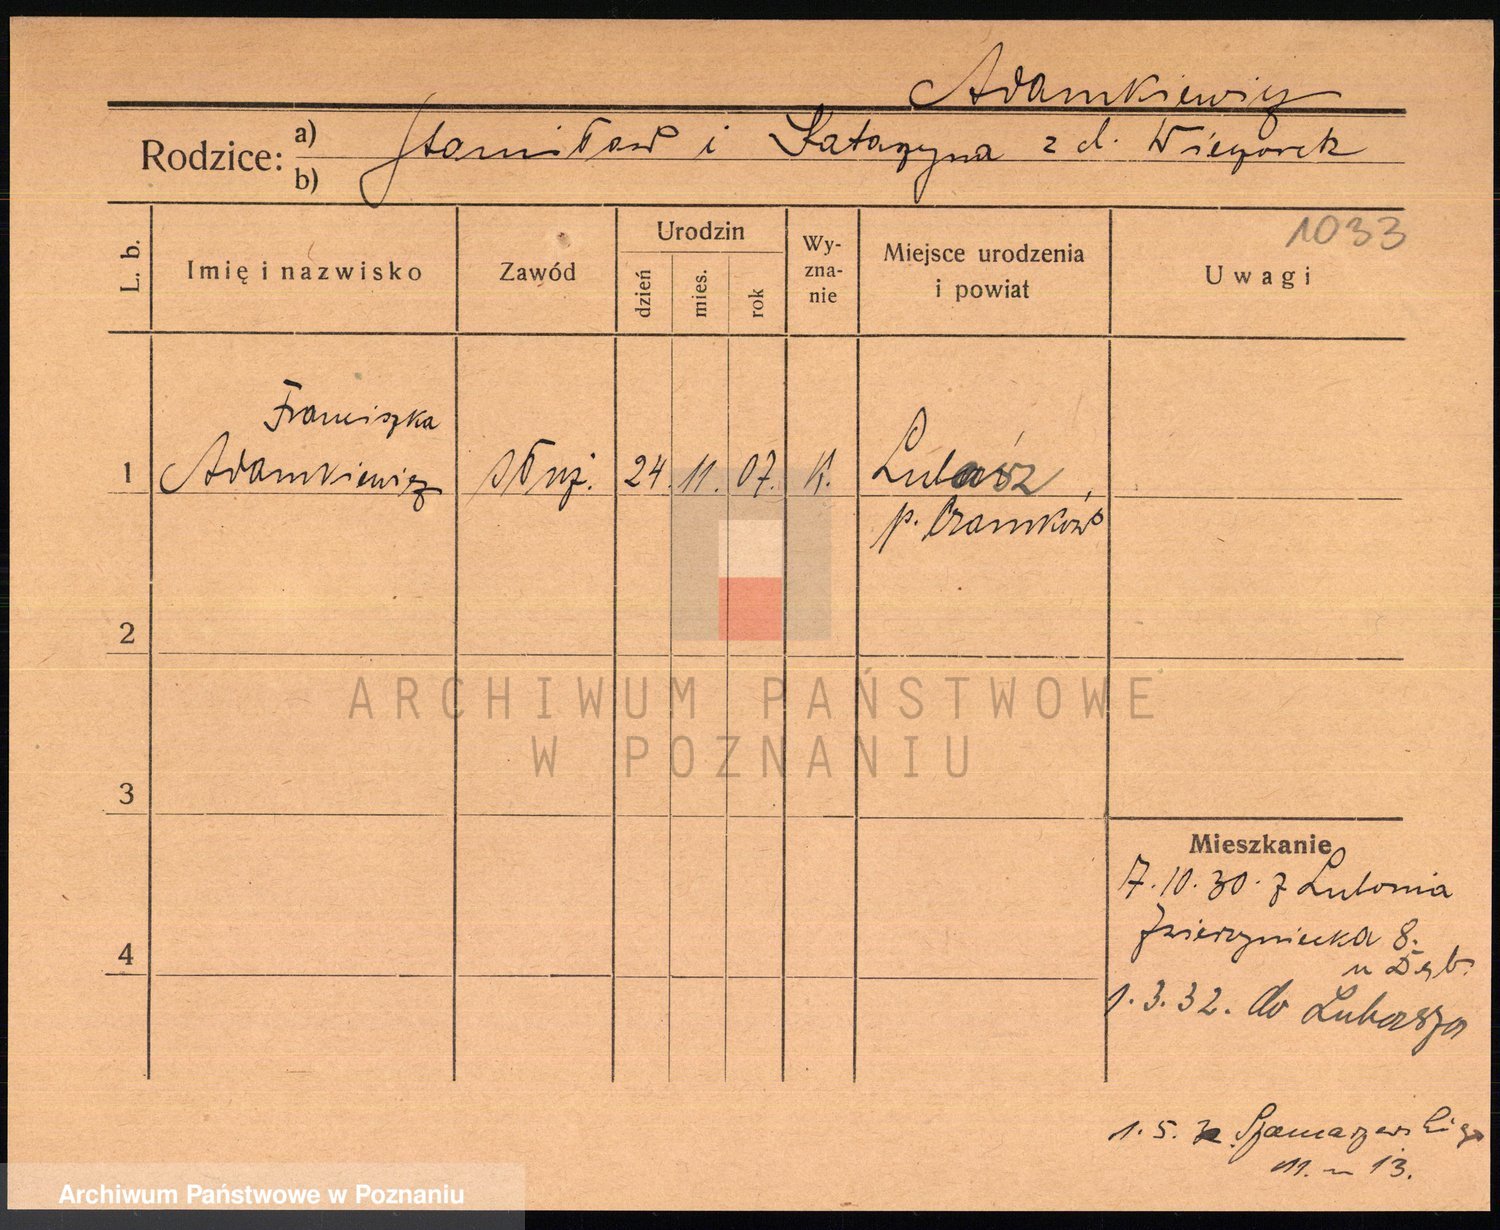 Adamkiewicz
Rodzice: a) b) Stanisław i Katarzyna z d. Wieczorek
1033
L. b. Imię i nazwisko Zawód Urodzin dzień mies. rok Wy-zna-nie Miejsce urodzenia i powiat Uwagi
Franciszka
1 Adamkiewicz służ. 24. 11. 07. K. Lubasz,
p. Czarnków
2
ARCHIWUM PAŃSTWOWE
W POZNANIU
3
Mieszkanie
7.10.30. z Lubonia
Zwierzyniecka 8.
4
1.3.32. do Lubasza
1.5. Szamarzewskiego
11. m 13.
Archiwum Państwowe w Poznaniu